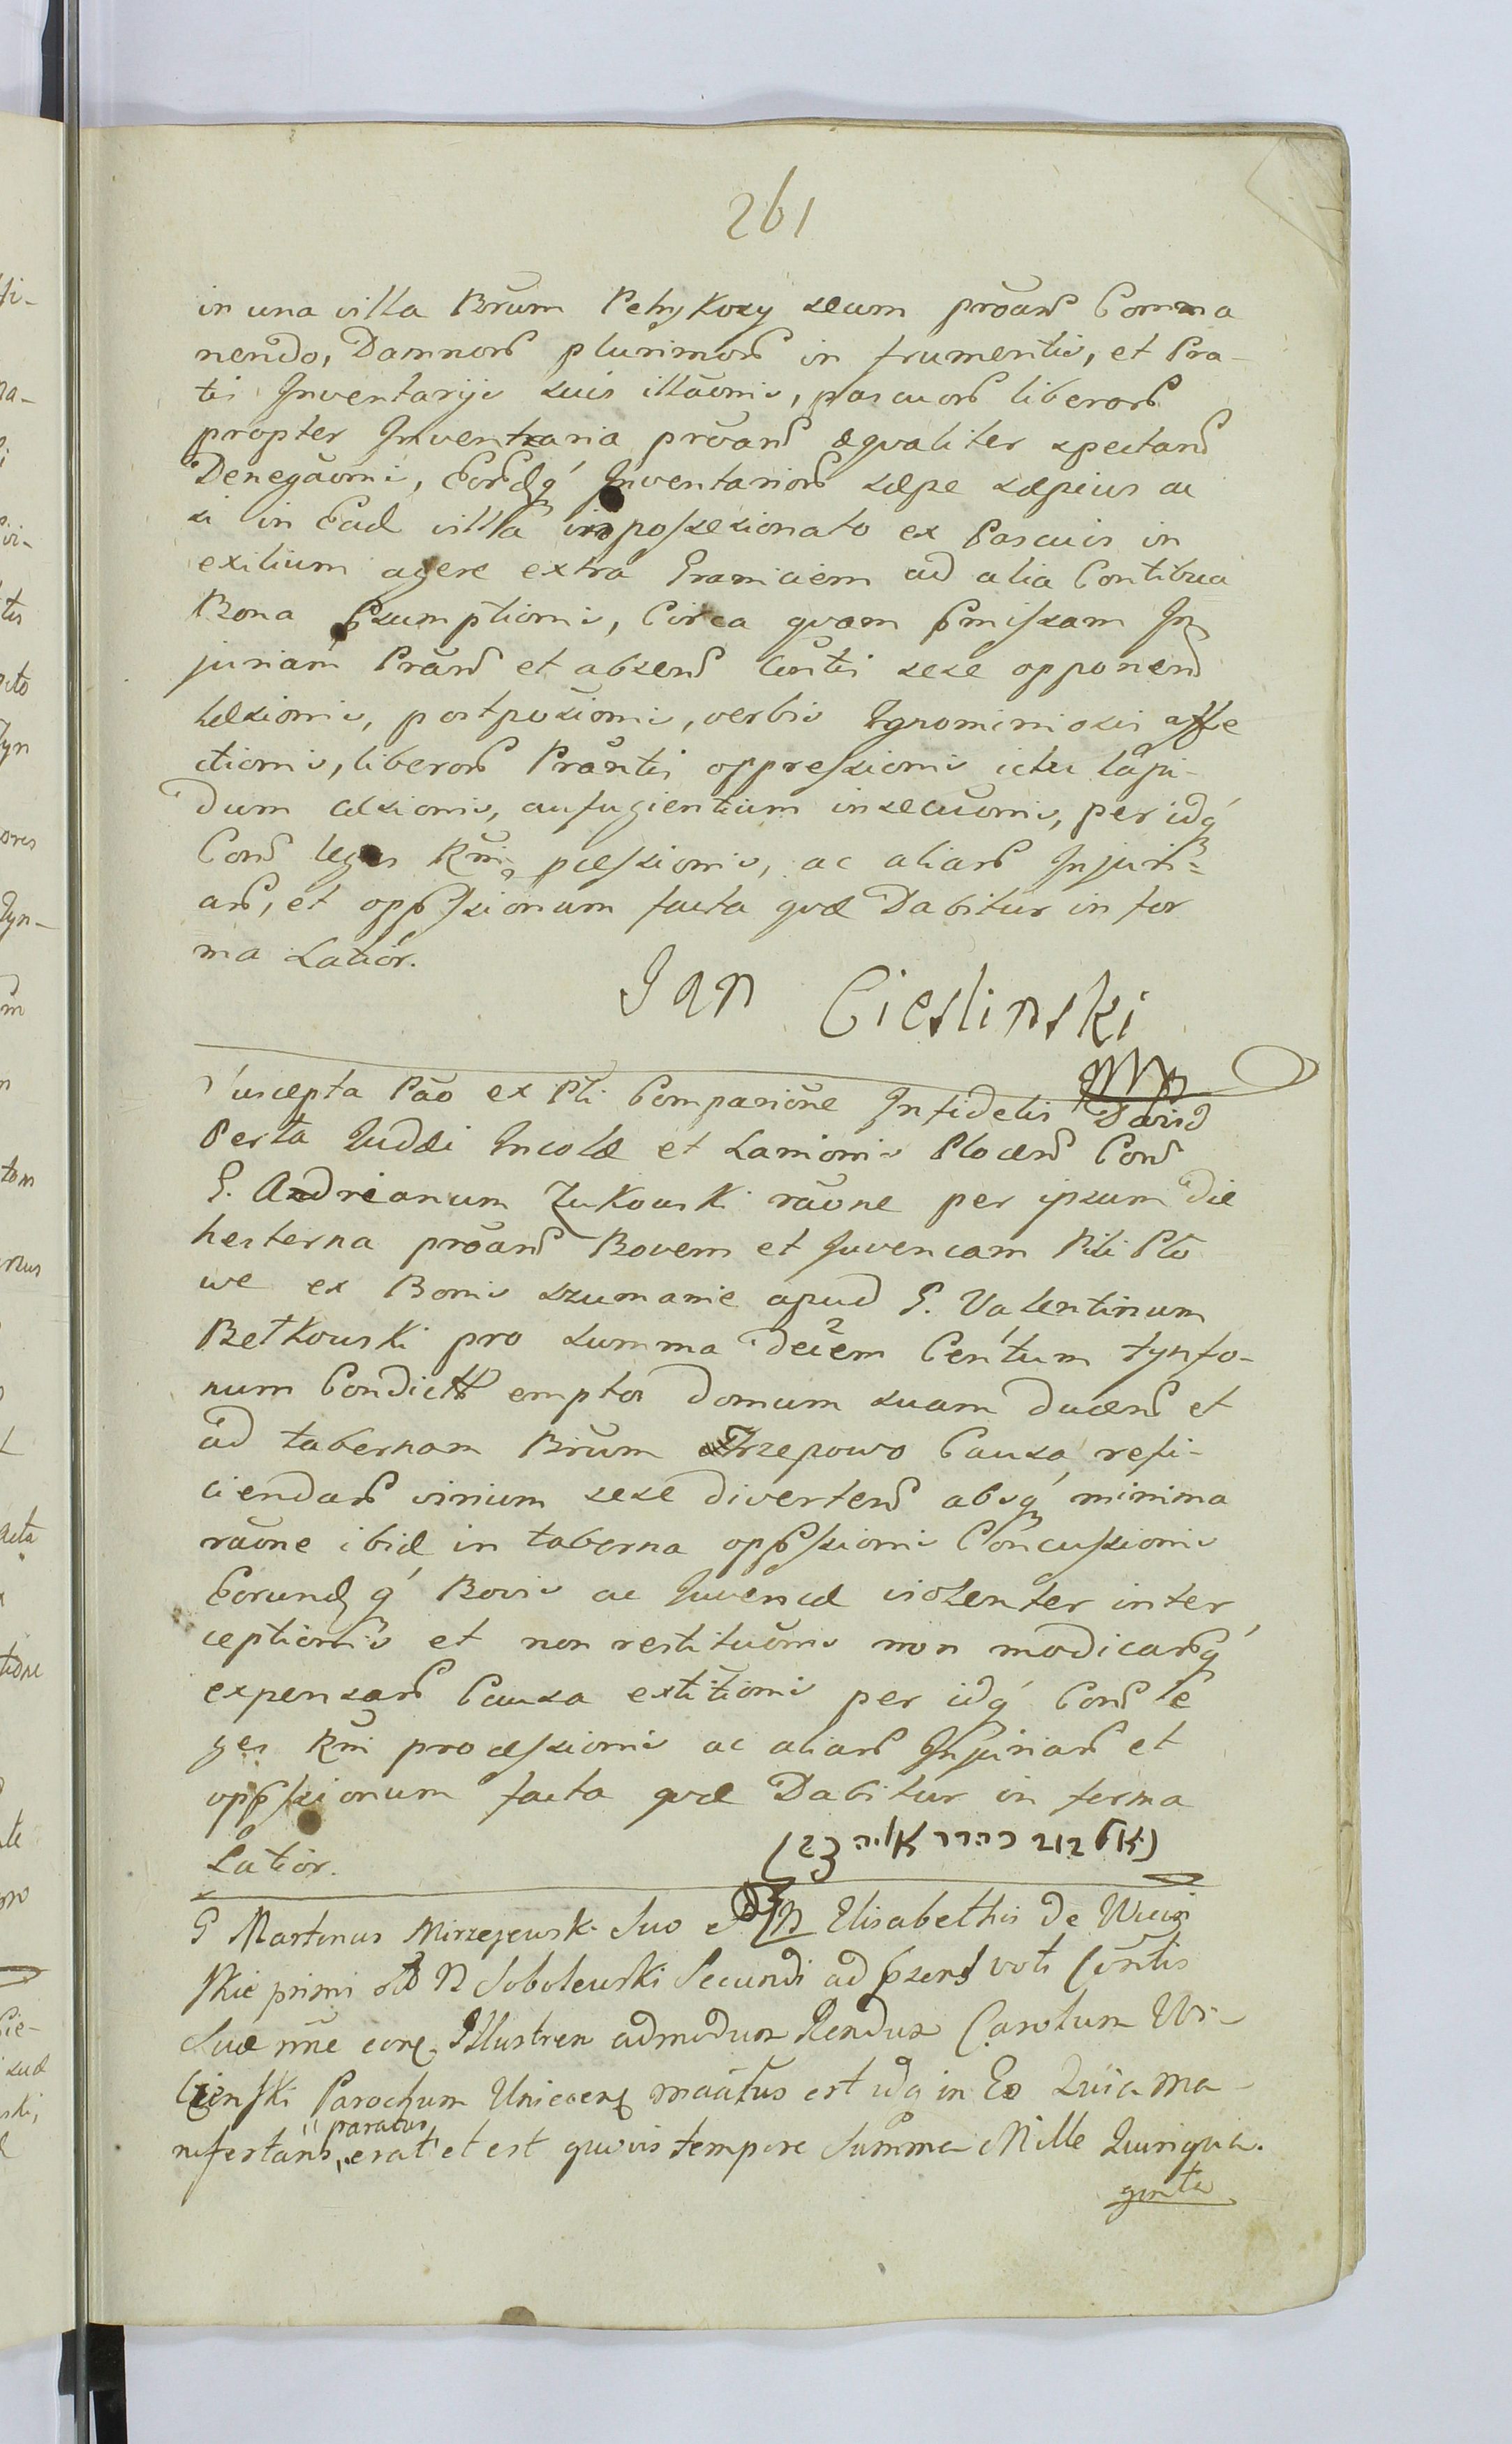 261
in una villa Bñrum Petrykozy secum proãrs Comma
nendo, Damnors plurimors in frumentis, et Pra-
tis Inventarijs suis illãonis, pascuors liberors
propter Inventaria proãrs æqualiter spectans
Denegãonis, Eorsdq́ Inventariors sæpe sæpius ac
si in Ead villa impossesionato ex Pascuis in
exilium agere extra Graniciem ad alia Contibua
Bona Præsumptionis, Circa quam præmissam In
juriam Prans et absens Contis sese opponens
læsionis, postposiõnis, verbis Ignominiosis affe
ctionis, liberors Prantis oppressionis ictu lapi-
dum cæsionis, aufugientium insecuõnis, per idq́
Cons leges Rñi pcessionis, ac aliars Injuri-
ars, et opprsionum facta quæ Dabitur in for
ma Latiór.
Jan Cieslinski
Suscepta Pão ex Pli Comparitiõne Infidelis David
Perla Judæi Incolæ et Lanionis Plocens Cons
G. Andreanum Zukowski rãone per ipsum die
hesterna proãrs Bovem et Juvencam Pili Plo
we ex Bonis Szumanie apud G. Valentinum
Betkowski pro summa Decem Centum tynfo-
num Condict emptos domum suam ducens et
ad tabernam Bñrum Trzepowo Causa refi-
ciendars virium sese divertens absq́ minima
rãone ibid in taberna opprssionis Concussionis
Eorundq́ Bovis ac Juvencæ violenter inter
ceptionis et non restituõnis non modicarsq́
expensars Causa extitionis per idq́ Cons le
ges Rñi processionis ac aliars Injuriars et
opprssionum facta quæ Dabitur in forma
Latiór.
G Martinus Mirzejewski Suo et G Elisabethis de
skie primi olo N Sobolewski Secundi ad præsens voti Cõntis
Suæ nñe corq Illustrem admodum Rendum Carolum Wi-
czenski Parochum Unieceny maãtus est idq in Eo Quia ma-
nifestans, paratus erat et est quovis tempore Summa Mille Quinqua.
ginta